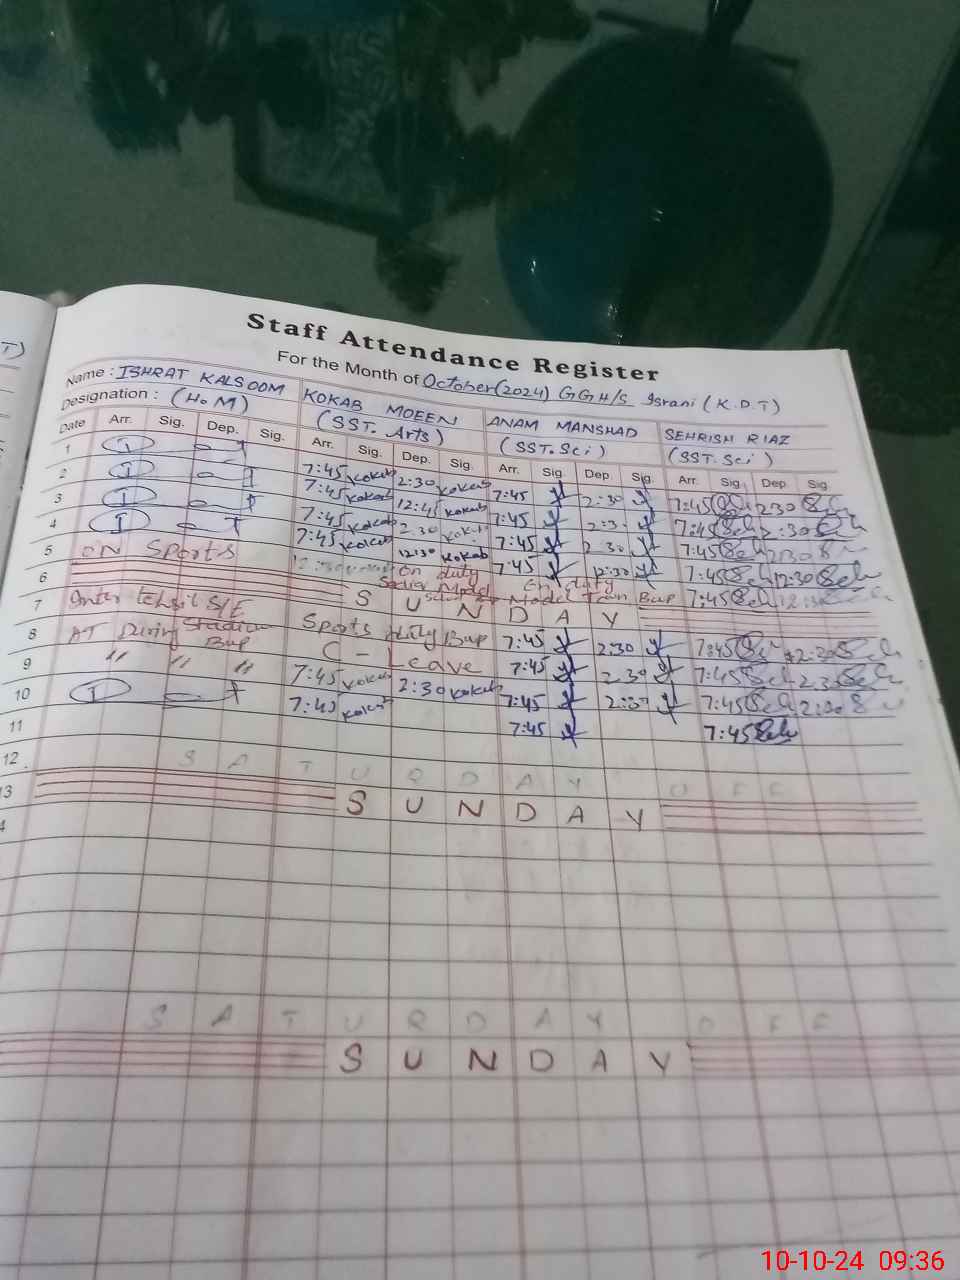 T)
Staff Attendance Register
For the Month of October (2024) GGH/S Israni (K.D.T)
Name : ISHRAT KALSOOM KOKAB MOEEN ANAM MANSHAD SEHRISH RIAZ
Designation : (H.M) (SST. Arts) (SST. Sci) (SST. Sci)
Date Arr. Sig. Dep. Sig. Arr. Sig. Dep. Sig. Arr. Sig. Dep. Sig. Arr. Sig. Dep. Sig.
1 7:45 Kokab 2:30 Kokab 7:45 2:30 7:45 Seh 2:30 Seh
2 7:45 Kokab 12:45 Kokab 7:45 2:30 7:45 Seh 2:30 Seh
3 7:45 Kokab 2:30 Kokab 7:45 2:30 7:45 Seh 2:30 Seh
4 7:45 Kokab 12:30 Kokab 7:45 12:30 7:45 Seh 12:30 Seh
5 ON Sports On duty On duty 7:45 Seh
6 S U N D A Y
7 Inter tehsil S/E Sports duty Bwp 7:45 2:30 7:45 2:30 Seh
8 AT Diring Stadium Bwp C - Leave 7:45 2:30 7:45 Seh 2:30 Seh
9 " " " 7:45 Kokab 2:30 Kokab 7:45 2:30 7:45 Seh 2:30
10 7:45 Kokab 7:45 7:45 Seh
11
12 S A T U R D A Y O F F
13 S U N D A Y
4
S A T U R D A Y O F F
S U N D A Y
10-10-24 09:36